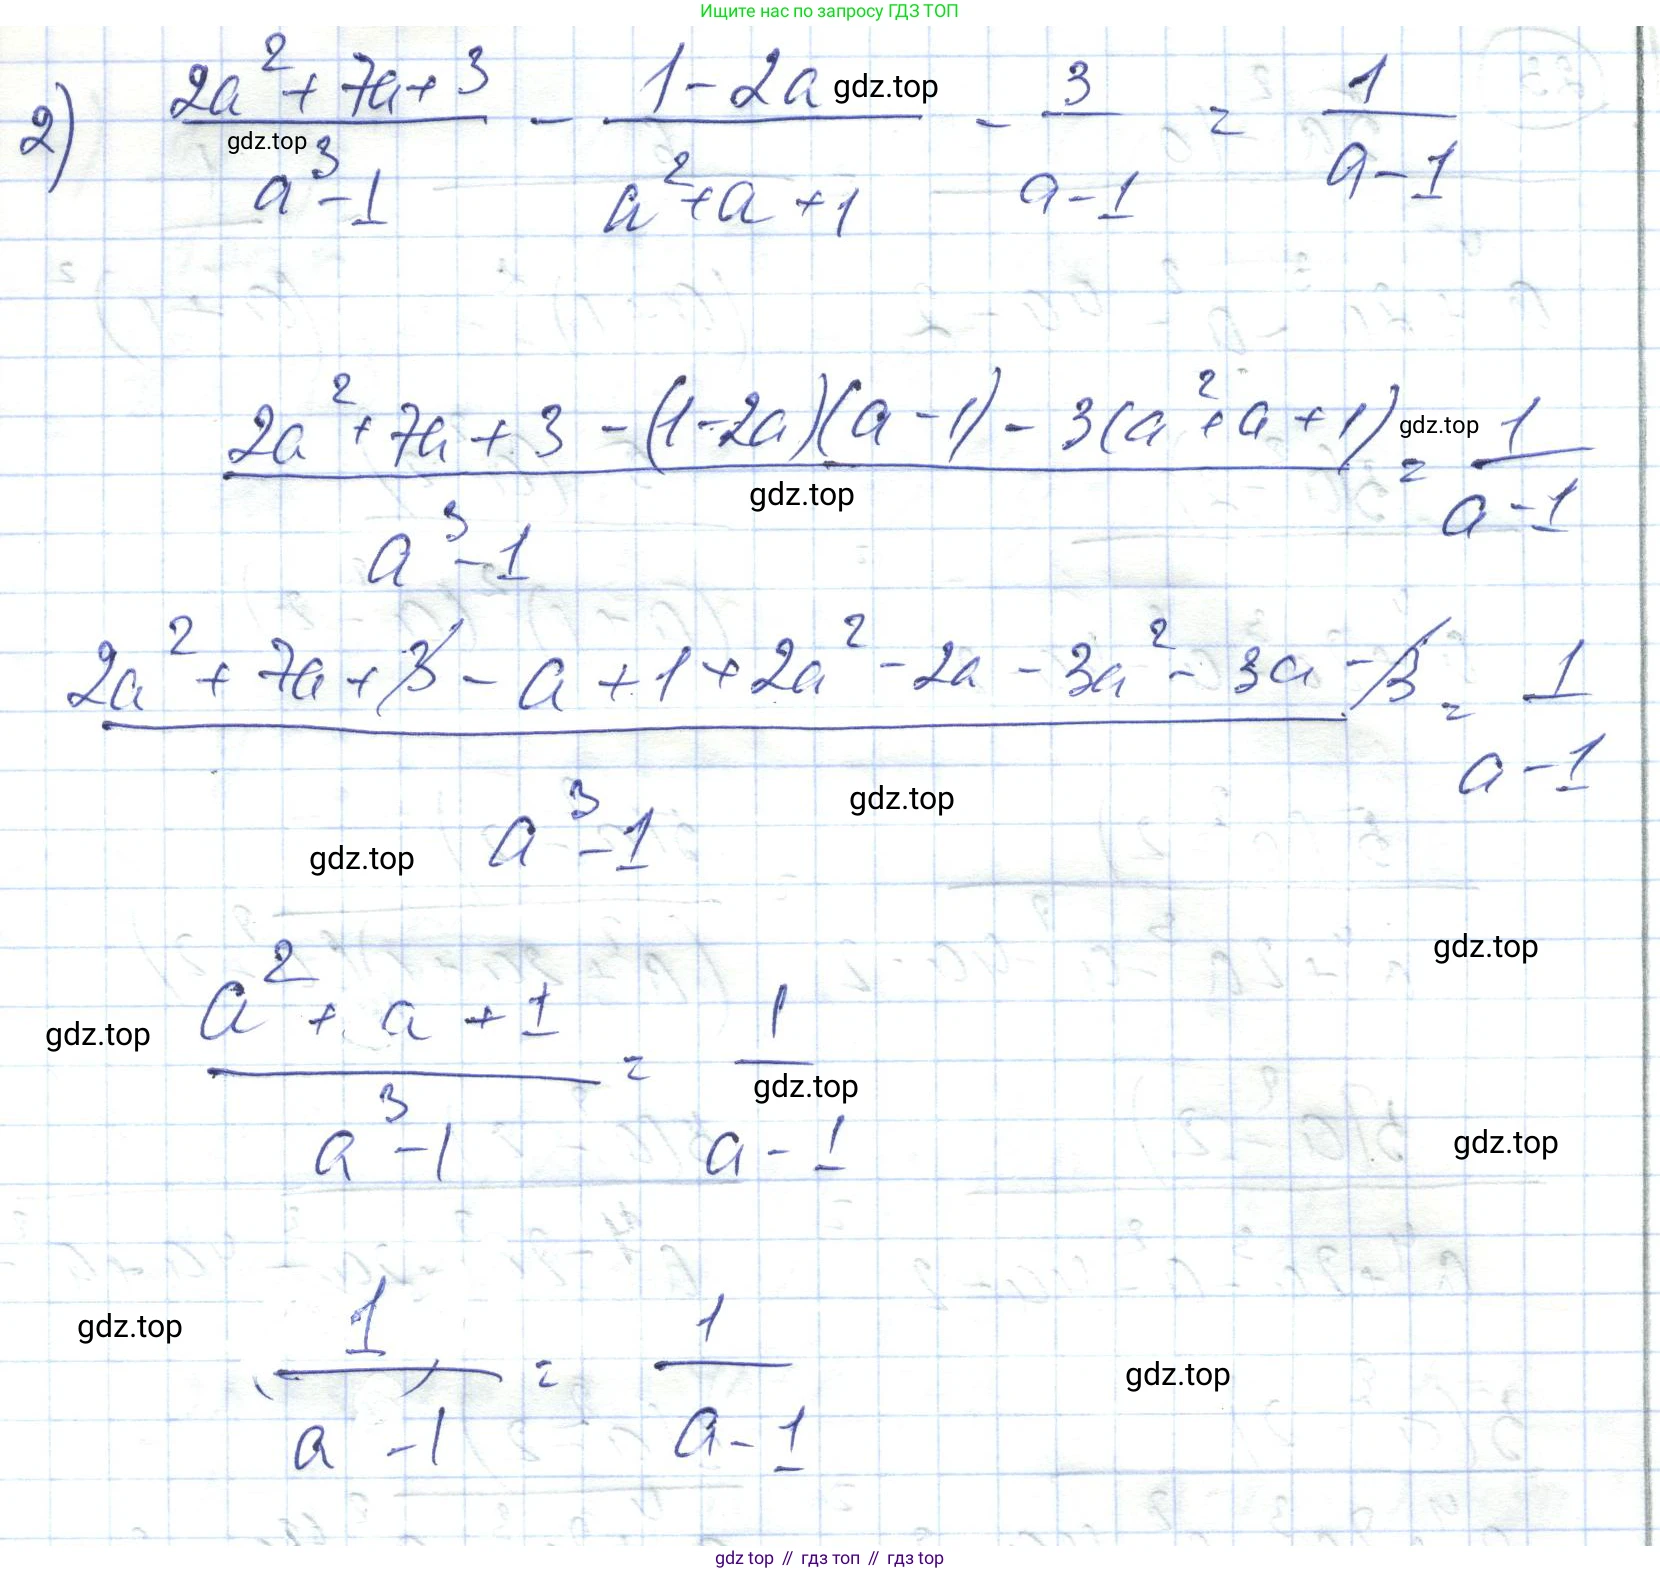 Ищите нас по запросу ГДЗ ТОП
2) (2a² + 7a + 3)/(a³ - 1) - (1 - 2a)/(a² + a + 1) - 3/(a - 1) = 1/(a - 1)
gdz.top
gdz.top
(2a² + 7a + 3 - (1 - 2a)(a - 1) - 3(a² + a + 1))/(a³ - 1) = 1/(a - 1)
gdz.top
gdz.top
(2a² + 7a + 3 - a + 1 + 2a² - 2a - 3a² - 3a - 3)/(a³ - 1) = 1/(a - 1)
gdz.top
gdz.top
gdz.top
(a² + a + 1)/(a³ - 1) = 1/(a - 1)
gdz.top
gdz.top
gdz.top
1/(a - 1) = 1/(a - 1)
gdz.top
gdz.top
gdz top // гдз топ // гдз top